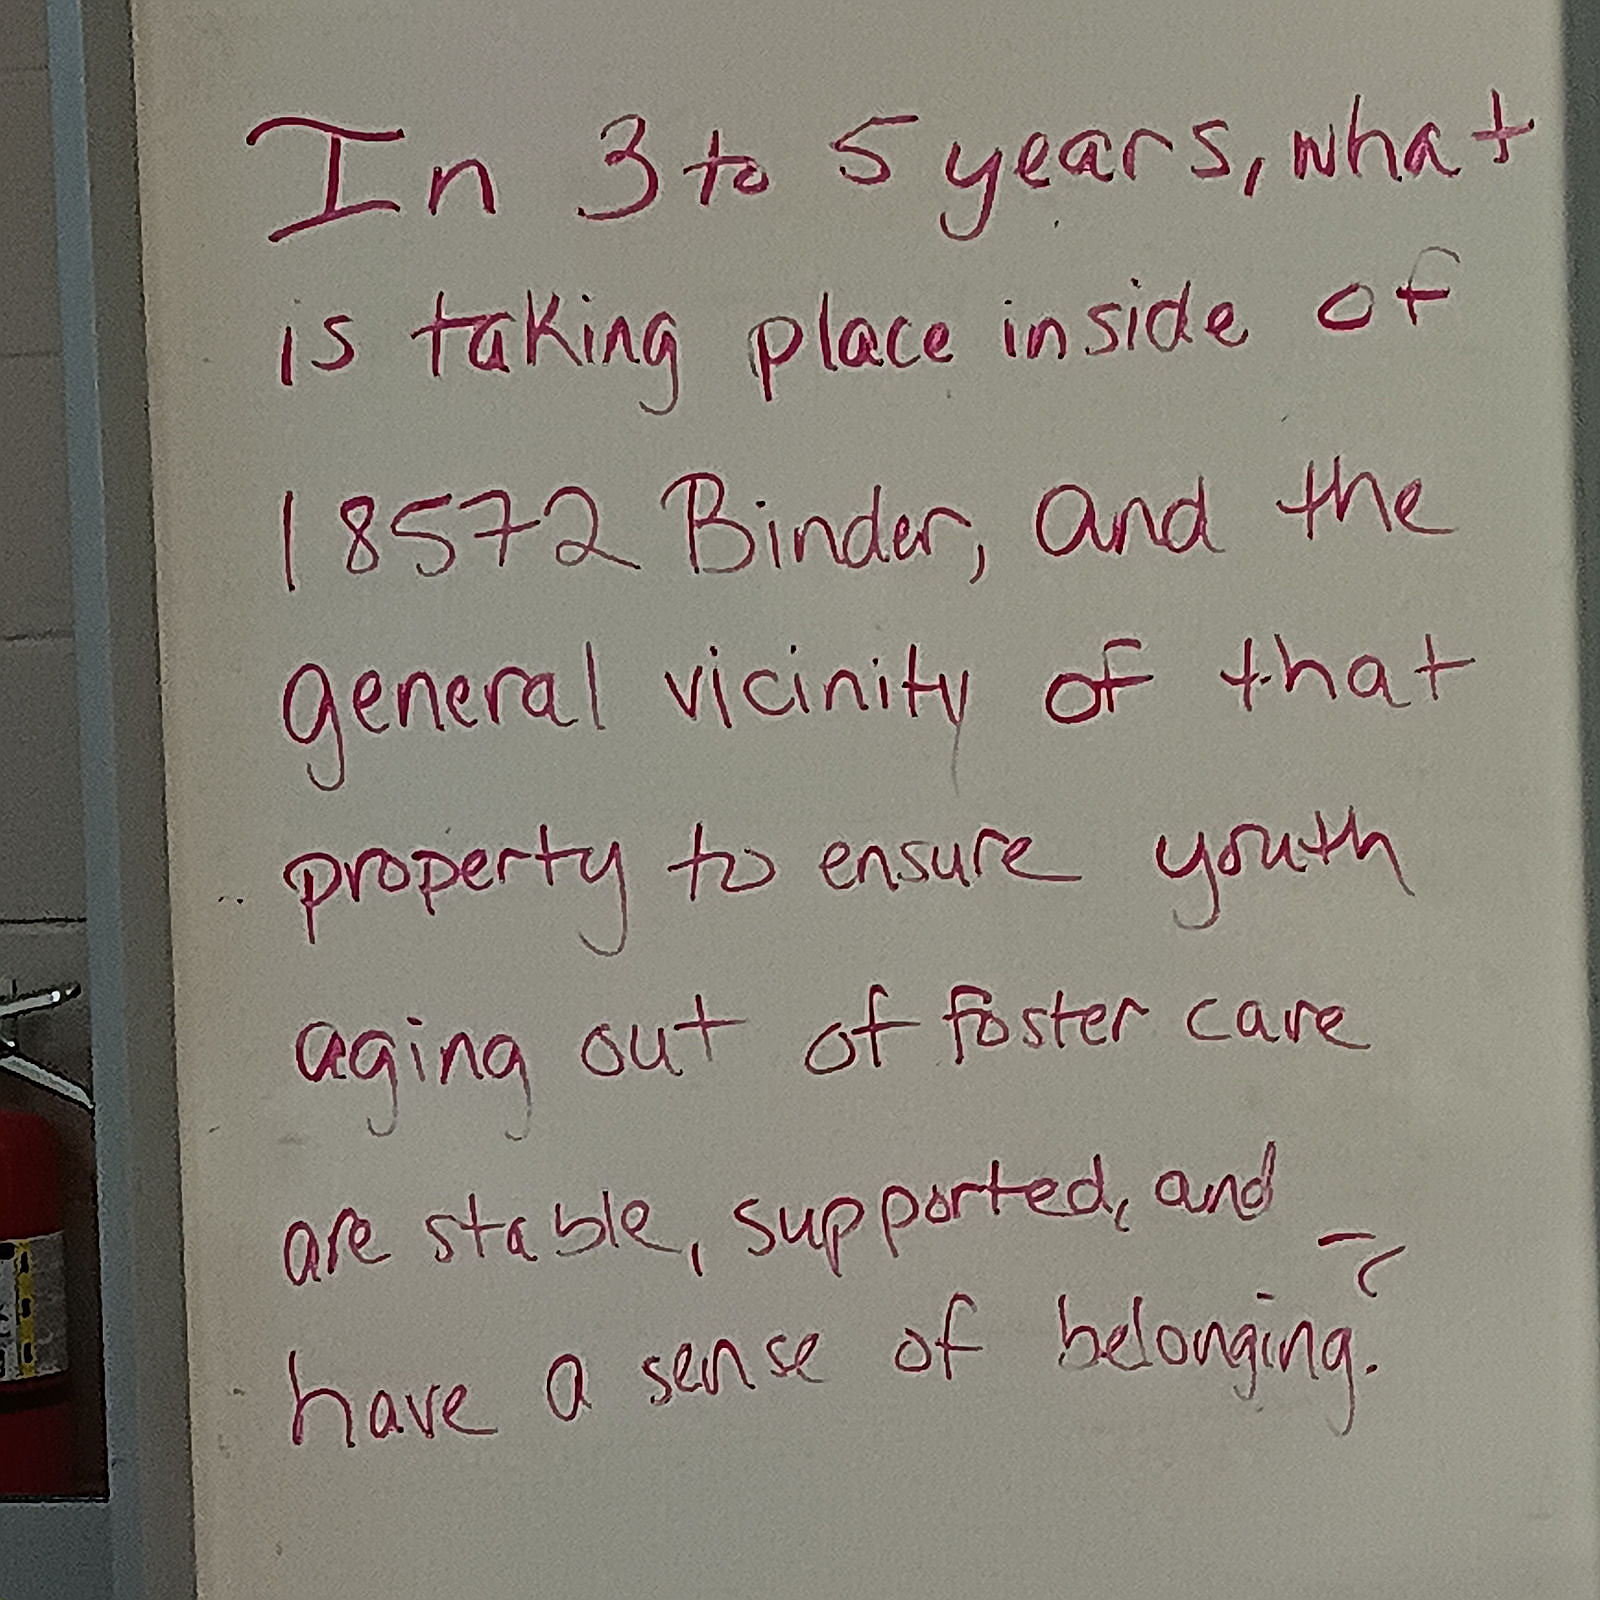 In 3 to 5 years, what
is taking place inside of
18572 Binder, and the
general vicinity of that
property to ensure youth
aging out of foster care
are stable, supported, and
have a sense of belonging?